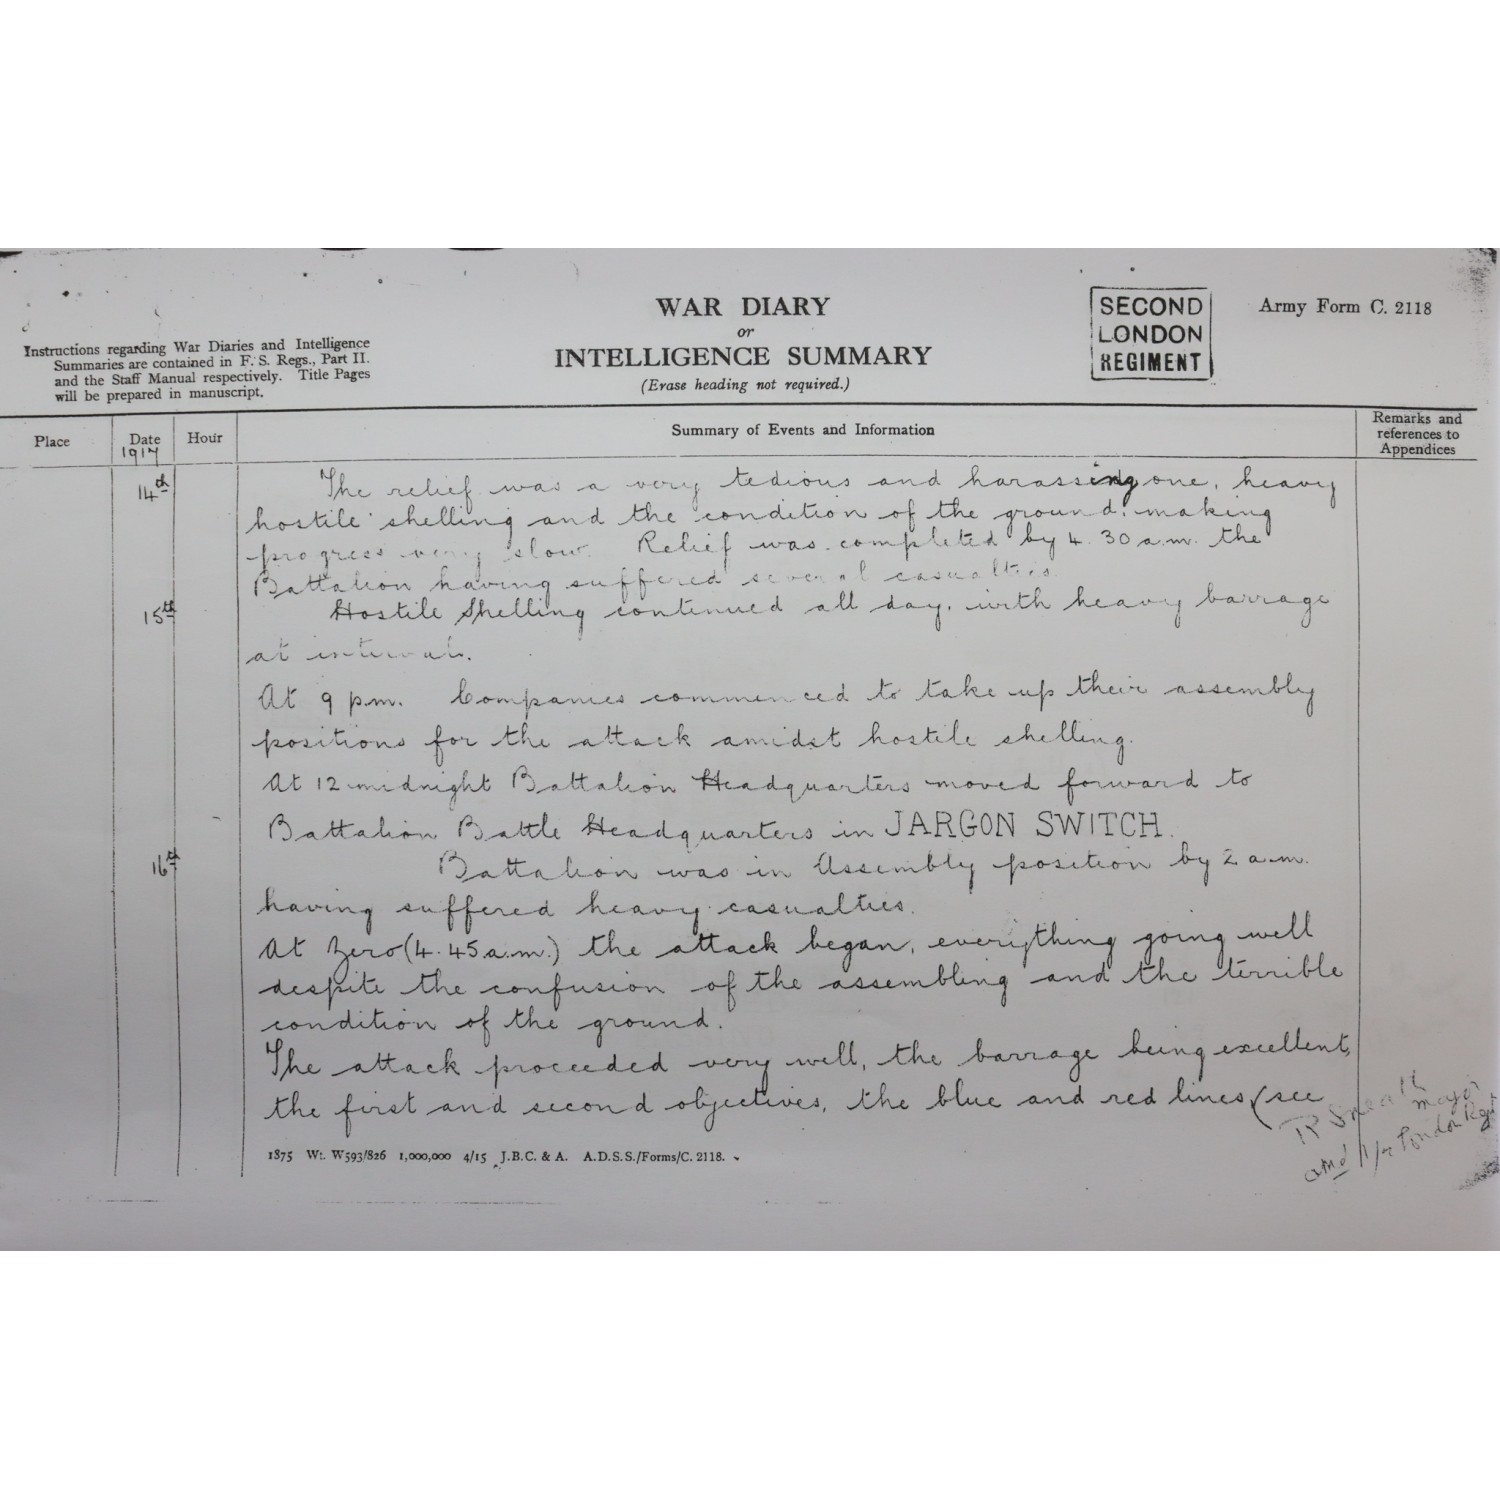 WAR DIARY
or
INTELLIGENCE SUMMARY
(Erase heading not required.)
SECOND
LONDON
REGIMENT
Army Form C. 2118
Instructions regarding War Diaries and Intelligence
Summaries are contained in F. S. Regs., Part II.
and the Staff Manual respectively. Title Pages
will be prepared in manuscript.
Place
Date
1917
Hour
Summary of Events and Information
Remarks and
references to
Appendices
14th The relief was a very tedious and harassing one, heavy
hostile shelling and the condition of the ground, making
progress very slow. Relief was completed by 4.30 a.m. the
Battalion having suffered several casualties.
15th Hostile Shelling continued all day, with heavy barrage
at intervals.
At 9 p.m. Companies commenced to take up their assembly
positions for the attack amidst hostile shelling.
At 12 midnight Battalion Headquarters moved forward to
Battalion Battle Headquarters in JARGON SWITCH.
16th Battalion was in Assembly position by 2 a.m.
having suffered heavy casualties.
At Zero (4.45 a.m.) the attack began, everything going well
despite the confusion of the assembling and the terrible
condition of the ground.
The attack proceeded very well, the barrage being excellent,
the first and second objectives, the blue and red lines (see
Major
London Regt
1875 Wt. W593/826 1,000,000 4/15 J.B.C. & A. A.D.S.S./Forms/C. 2118.